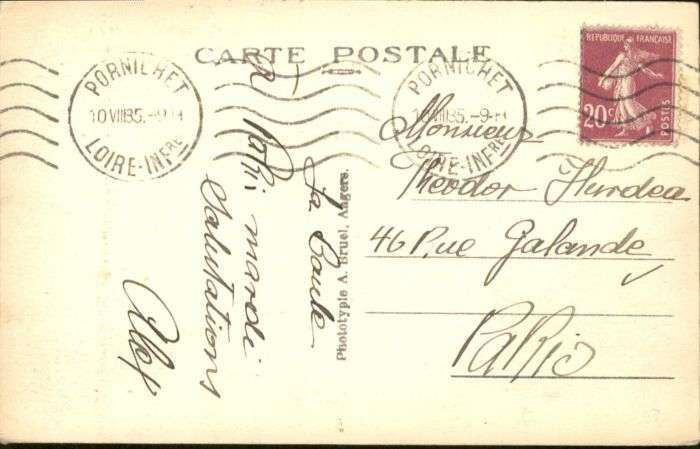 CARTE POSTALE
RÉPUBLIQUE FRANÇAISE
20c
POSTES
PORNICHET
10 VIII 35. - 9 H
LOIRE-INFRE
PORNICHET
10 VIII 35. - 9 H
LOIRE-INFRE
La Baule
à Paris mardi
Salutations
Phototypie A. Bruel, Angers.
Monsieur
Theodor Hurdea
46 Rue Galande
Paris